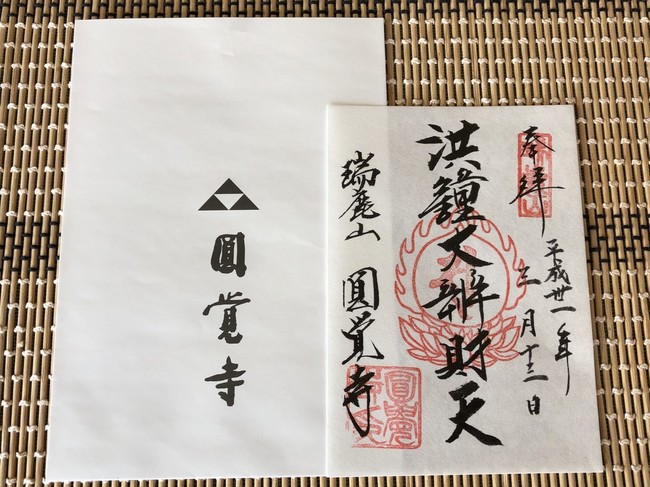 圓覺寺
奉拝
平成卅一年
三月十三日
洪鐘大辨財天
瑞鹿山 圓覚寺